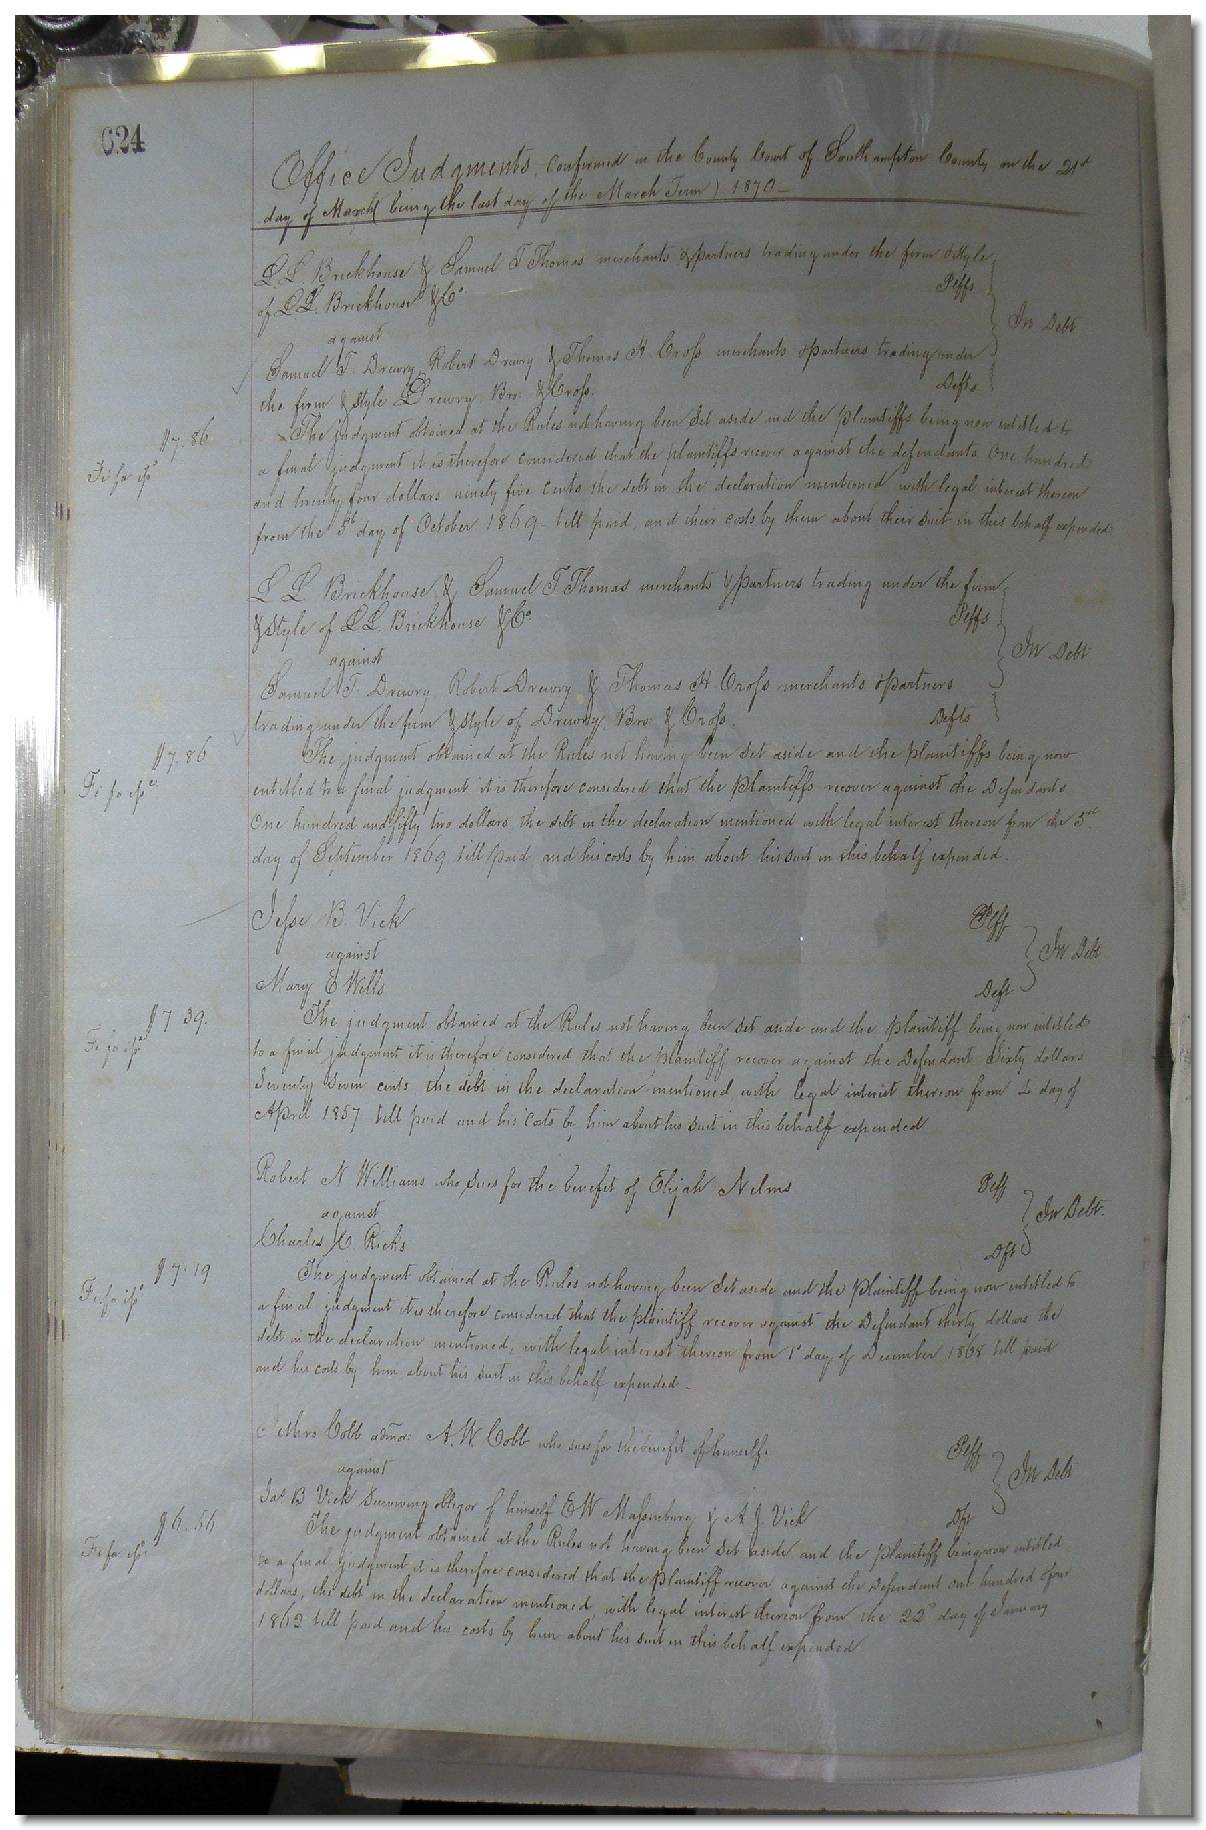 624
Office Judgments, Confirmed in the County Court of Southampton County on the 21st
day of March (being the last day of the March Term) 1870
L L Brickhouse & Samuel T Thomas merchants & partners trading under the firm & style
of L L. Brickhouse & Co Plffs
against In Debt
Samuel T. Drewry, Robert Drewry & Thomas H Cross merchants & partners trading under
the firm & style Drewry Bro. & Cross. Defts
$7.86 The judgment obtained at the Rules not having been set aside and the plaintiffs being now entitled to
Fi fa isd a final judgment it is therefore considered that the plaintiffs recover against the defendants One hundred
and twenty four dollars ninety five cents the debt in the declaration mentioned with legal interest thereon
from the 5th day of October 1869 till paid, and their costs by them about their suit in this behalf expended
L L Brickhouse & Samuel T Thomas merchants & partners trading under the firm
& style of L L. Brickhouse & Co. Plffs
against In Debt
Samuel T. Drewry, Robert Drewry & Thomas H Cross merchants & partners
trading under the firm & style of Drewry, Bro. & Cross. Defts
$7.86 The judgment obtained at the Rules not having been set aside and the plaintiffs being now
Fi fa isd entitled to a final judgment it is therefore considered that the plaintiffs recover against the Defendants
One hundred and fifty two dollars the debt in the declaration mentioned with legal interest thereon from the 3rd
day of September 1869 till paid and his costs by him about his suit in this behalf expended.
Jesse B. Vick Plff
against In Debt
Mary E Wells Deft
$7 39. The judgment obtained at the Rules not having been set aside and the plaintiff being now entitled
Fi fa isd to a final judgment it is therefore considered that the plaintiff recover against the Defendant Sixty dollars
Seventy Seven cents the debt in the declaration mentioned with legal interest thereon from day of
April 1857 till paid and his costs by him about his suit in this behalf expended
Robert N Williams who sues for the benefit of Elijah Nelms Plff
against In Debt.
Charles C Ricks Dft
$7.19 The judgment obtained at the Rules not having been set aside and the plaintiff being now entitled to
Fi fa isd a final judgment it is therefore considered that the plaintiff recover against the Defendant thirty dollars the
debt in the declaration mentioned, with legal interest thereon from 1st day of December 1868 till paid
and his costs by him about his suit in this behalf expended
Jethro Cobb admor: A. W. Cobb who sues for the benefit of himself. Plff
against In Debt
Jas B Vick Surviving obligor of himself E W Massenburg & A J Vick Dft
$6.66 The judgment obtained at the Rules not having been set aside and the plaintiff being now entitled
Fi fa isd to a final judgment it is therefore considered that the plaintiff recover against the Defendant one hundred & four
dollars, the debt in the declaration mentioned, with legal interest thereon from the 22d day of January
1862 till paid and his costs by him about his suit in this behalf expended